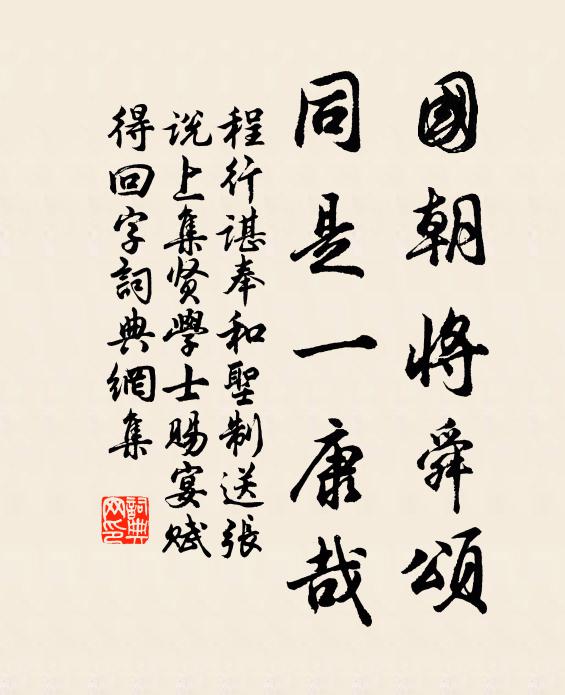 國朝將舜頌
同是一康哉
程行諶奉和聖制送張
说上集贤學士賜宴赋
得回字詞典網集
詞典
网印